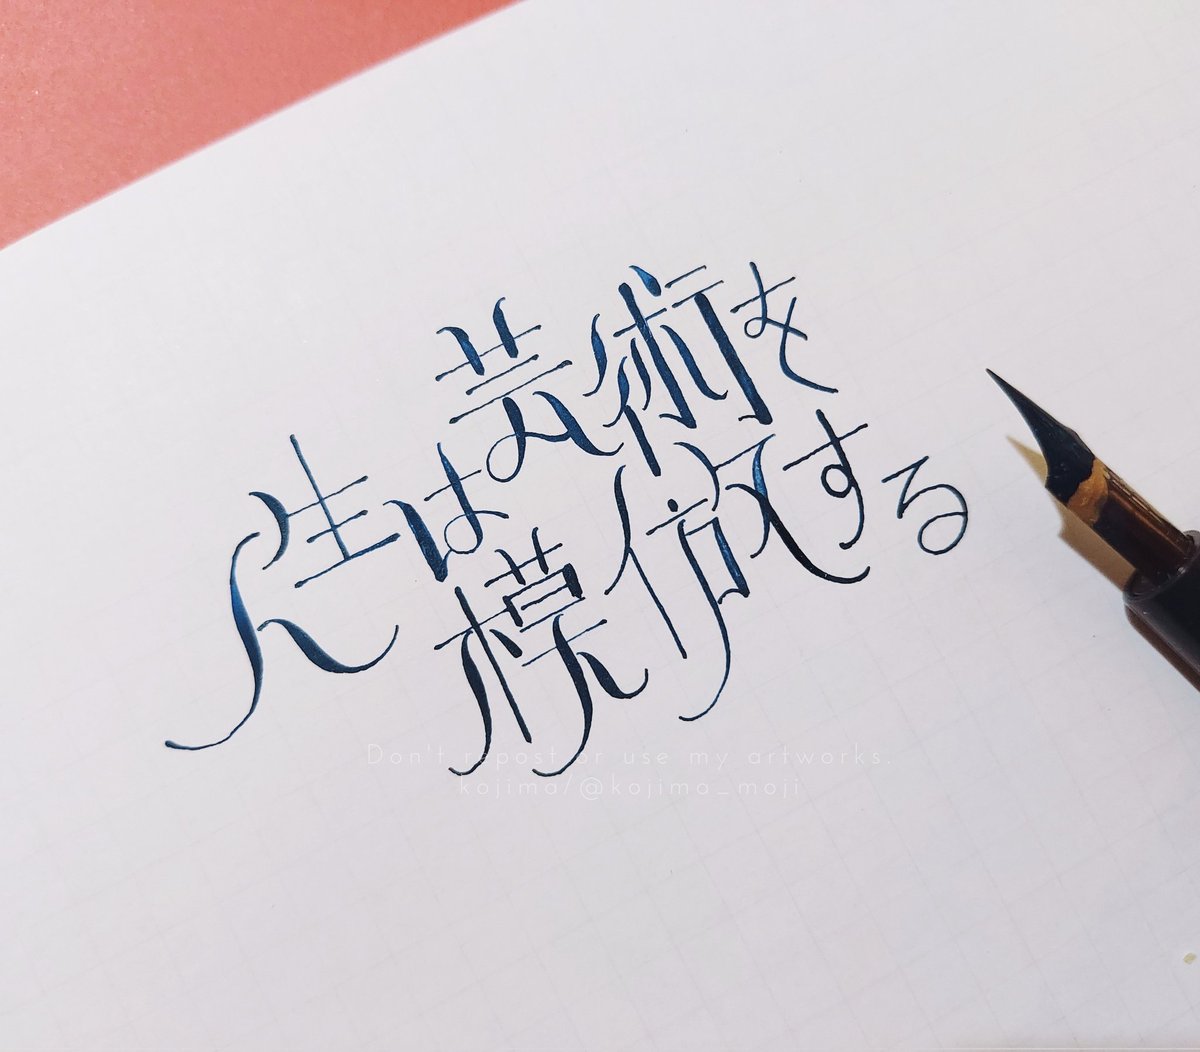 人生は
芸術を
模倣する
Don't repost or use my artworks.
kojima/@kojima_moji